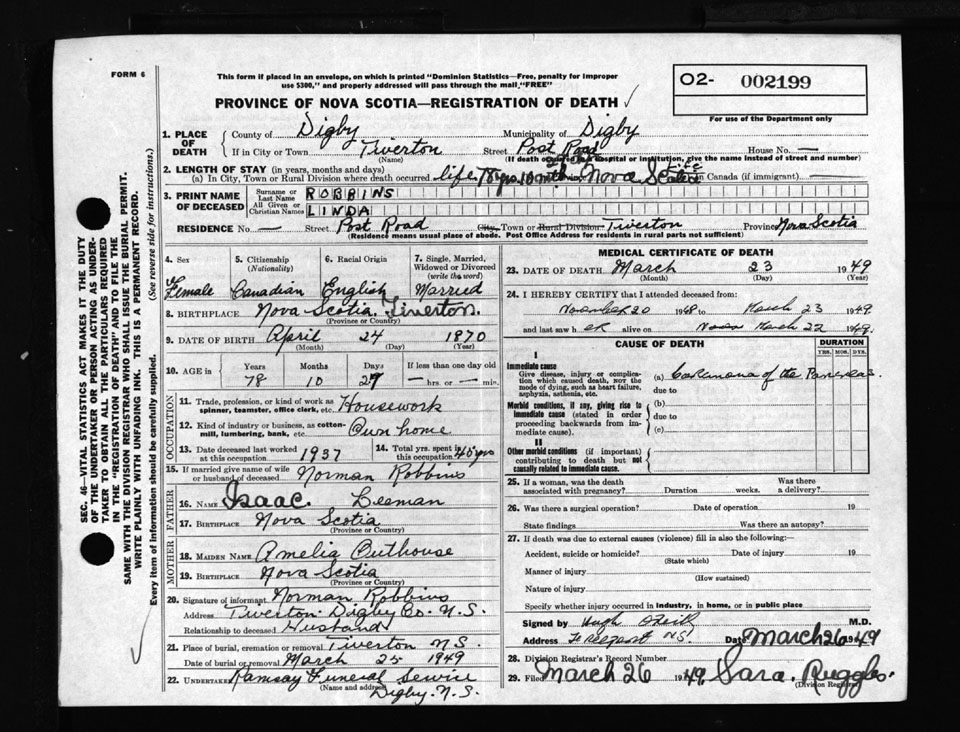 FORM 6
This form if placed in an envelope, on which is printed "Dominion Statistics—Free, penalty for improper
use $300," and properly addressed will pass through the mail, "FREE"
O2- 002199
For use of the Department only
PROVINCE OF NOVA SCOTIA—REGISTRATION OF DEATH
1. PLACE OF DEATH
County of Digby Municipality of Digby
If in City or Town Tiverton Street Post Road House No. —
(Name) (If death occurred in a hospital or institution, give the name instead of street and number)
2. LENGTH OF STAY (in years, months and days)
(a) In City, Town or Rural Division where death occurred life 78 yrs 10 mths in Nova Scotia life in Canada (if immigrant) —
3. PRINT NAME OF DECEASED
Surname or Last Name ROBBINS
All Given or Christian Names LINDA
RESIDENCE No. — Street Post Road City, Town or Rural Division Tiverton Province Nova Scotia
(Residence means usual place of abode. Post Office Address for residents in rural parts not sufficient)
4. Sex 5. Citizenship (Nationality) 6. Racial Origin 7. Single, Married, Widowed or Divorced (write the word)
Female Canadian English Married
8. BIRTHPLACE Nova Scotia. Tiverton.
(Province or Country)
9. DATE OF BIRTH April 24 1870
(Month) (Day) (Year)
10. AGE in Years Months Days If less than one day old
78 10 27 — hrs. or — min.
OCCUPATION
11. Trade, profession, or kind of work as spinner, teamster, office clerk, etc. Housework
12. Kind of industry or business, as cotton-mill, lumbering, bank, etc. Own home
13. Date deceased last worked at this occupation 1937 14. Total yrs. spent in this occupation 40 yrs
15. If married give name of wife or husband of deceased Norman Robbins
FATHER
16. NAME Isaac. Leeman
17. BIRTHPLACE Nova Scotia
(Province or Country)
MOTHER
18. MAIDEN NAME Amelia Outhouse
19. BIRTHPLACE Nova Scotia
(Province or Country)
20. Signature of informant Norman Robbins
Address Tiverton Digby Co. N.S.
Relationship to deceased Husband
21. Place of burial, cremation or removal Tiverton N.S.
Date of burial or removal March 25 1949
22. UNDERTAKER Ramsay Funeral Service
(Name and address) Digby. N.S.
MEDICAL CERTIFICATE OF DEATH
23. DATE OF DEATH March 23 1949
(Month) (Day)
24. I HEREBY CERTIFY that I attended deceased from:
November 20 1948 to March 23 1949
and last saw h er alive on March 22 1949.
CAUSE OF DEATH DURATION
YRS. MOS. DYS.
I
Immediate cause
Give disease, injury or complication which caused death, not the mode of dying, such as heart failure, asphyxia, asthenia, etc.
(a) Carcinoma of the Pancreas.
due to
Morbid conditions, if any, giving rise to immediate cause (stated in order proceeding backwards from immediate cause).
(b)
due to
(c)
II
Other morbid conditions (if important) contributing to death but not causally related to immediate cause.
25. If a woman, was the death associated with pregnancy? Duration weeks. Was there a delivery?
26. Was there a surgical operation? Date of operation 19
State findings Was there an autopsy?
27. If death was due to external causes (violence) fill in also the following:—
Accident, suicide or homicide? Date of injury 19
(State which)
Manner of injury
(How sustained)
Nature of injury
Specify whether injury occurred in industry, in home, or in public place
Signed by Hugh O'Neill M.D.
Address Freeport N.S. Date March 26 1949
28. Division Registrar's Record Number
29. Filed March 26 1949. Sara. Ruggles.
(Division Registrar)
SEC. 46—VITAL STATISTICS ACT MAKES IT THE DUTY
OF THE UNDERTAKER OR PERSON ACTING AS UNDER-
TAKER TO OBTAIN ALL THE PARTICULARS REQUIRED
IN THE "REGISTRATION OF DEATH" AND TO FILE THE
SAME WITH THE DIVISION REGISTRAR WHO SHALL ISSUE THE BURIAL PERMIT.
WRITE PLAINLY WITH UNFADING INK. THIS IS A PERMANENT RECORD.
Every item of information should be carefully supplied. (See reverse side for instructions.)